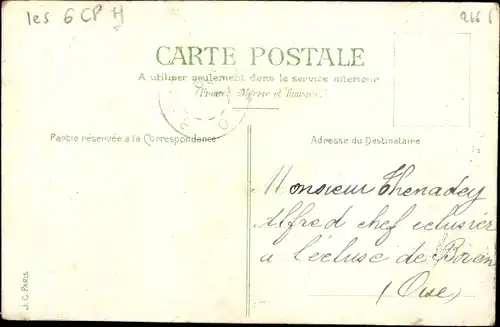 les 6 CP H
216
CARTE POSTALE
A utiliser seulement dans le service intérieur
(France, Algérie et Tunisie.)
Partie réservée à la Correspondance
Adresse du Destinataire
Monsieur Thenadey
Alfred chef eclusier
a l'écluse de
(Oise)
J. C. PARIS